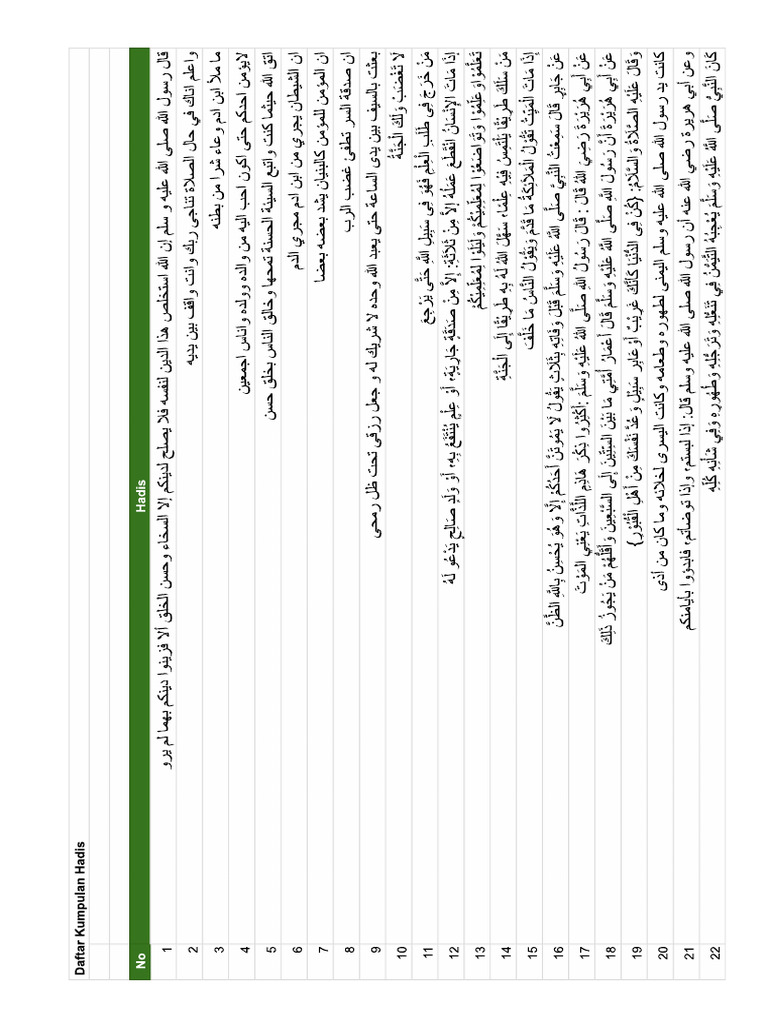 Daftar Kumpulan Hadis
No Hadis
1 قال رسول الله صلى الله عليه و سلم إن الله استخلص هذا الدين لنفسه فلا يصلح لدينكم إلا السخاء وحسن الخلق ألا فزينوا دينكم بهما لم يرو
2 واعلم انك في حال الصلاة تناجى ربك وانت واقف بين يديه
3 ما ملأ ابن ادم وعاء شرا من بطنه
4 لايؤمن احدكم حتى اكون احب اليه من والده وولده واناس اجمعين
5 اتق الله حيثما كنت واتبع السيئة الحسنة تمحها وخالق الناس بخلق حسن
6 ان الشيطان يجري من ابن ادم مجري الدم
7 ان المؤمن للمؤمن كالبنيان يشد بعضه بعضا
8 ان صدقة السر تطفئ غضب الرب
9 بعثت بالسيف بين يدى الساعة حتى يعبد الله وحده لا شريك له و جعل رزقى تحت ظل رمحى
10 لَا تَغْضَبْ وَلَكَ الْجَنَّةُ
11 مَنْ خَرَجَ فِى طَلَبِ الْعِلْمِ فَهُوَ فِى سَبِيْلِ اللَّهِ حَتَّى يَرْجِعَ
12 إِذَا مَاتَ الإِنْسَانُ انْقَطَعَ عَمَلُهُ إِلاَّ مِنْ ثَلاَثَةٍ: إِلاَّ مِنْ صَدَقَةٍ جَارِيَةٍ، أَوْ عِلْمٍ يُنْتَفَعُ بِهِ، أَوْ وَلَدٍ صَالِحٍ يَدْعُو لَهُ
13 تَعَلَّمُوْا وَ عَلِّمُوْا وَتَوَاضَعُوْا لِمُعَلِّمِيْكُمْ وَلَيَلَوْا لِمُعَلِّمِيْكُمْ
14 مَنْ سَلَكَ طَرِيقًا يَلْتَمِسُ فِيهِ عِلْمًا، سَهَّلَ اللهُ لَهُ بِهِ طَرِيقًا إِلَى الْجَنَّةِ
15 إِذَا مَاتَ الْمَيِّتُ تَقُولُ الْمَلَائِكَةُ مَا قَدَّمَ وَيَقُولُ النَّاسُ مَا خَلَّفَ
16 عَنْ جَابِرٍ قَالَ سَمِعْتُ النَّبِيَّ صَلَّى اللهُ عَلَيْهِ وَسَلَّمَ قَبْلَ وَفَاتِهِ بِثَلَاثٍ يَقُولُ لَا يَمُوتَنَّ أَحَدُكُمْ إِلَّا وَهُوَ يُحْسِنُ بِاللهِ الظَّنَّ
17 عَنْ أَبِي هُرَيْرَةَ رَضِيَ اللهُ قَالَ : قَالَ رَسُولُ اللهِ صَلَّى اللهُ عَلَيْهِ وَسَلَّمَ :أَكْثِرُوا ذِكْرَ هَاذِمِ اللَّذَّاتِ يَعْنِي الْمَوْتَ
18 عَنْ أَبِي هُرَيْرَةَ أَنَّ رَسُولَ اللهِ صَلَّى اللهُ عَلَيْهِ وَسَلَّمَ قَالَ أَعْمَارُ أُمَّتِي مَا بَيْنَ السِّتِّينَ إِلَى السَّبْعِينَ وَأَقَلُّهُمْ مَنْ يَجُوزُ ذَلِكَ
19 وَقَالَ عَلَيْهِ الصَّلَاةُ وَالسَّلَامُ: {كُنْ فِي الدُّنْيَا كَأَنَّكَ غَرِيبٌ أَوْ عَابِرِ سَبِيْلٍ وَعُدَّ نَفْسَكَ مِنْ أَهْلِ الْقُبُوْرِ}
20 كانت يد رسول الله صلى الله عليه وسلم اليمنى لطهوره وطعامه وكانت اليسرى لخلائه وما كان من أذى
21 وعن أبي هريرة رضي الله عنه ان رسول الله صلى الله عليه وسلم قال: إذا لبستم، وإذا توضأتم، فابدؤوا بأيامنكم
22 كَانَ النَّبِيُّ صَلَّى اللهُ عَلَيْهِ وَسَلَّمَ يُعْجِبُهُ التَّيَمُّنُ فِي تَنَعُّلِهِ وَتَرَجُّلِهِ وَطُهُورِهِ وَفِي شَأْنِهِ كُلِّهِ